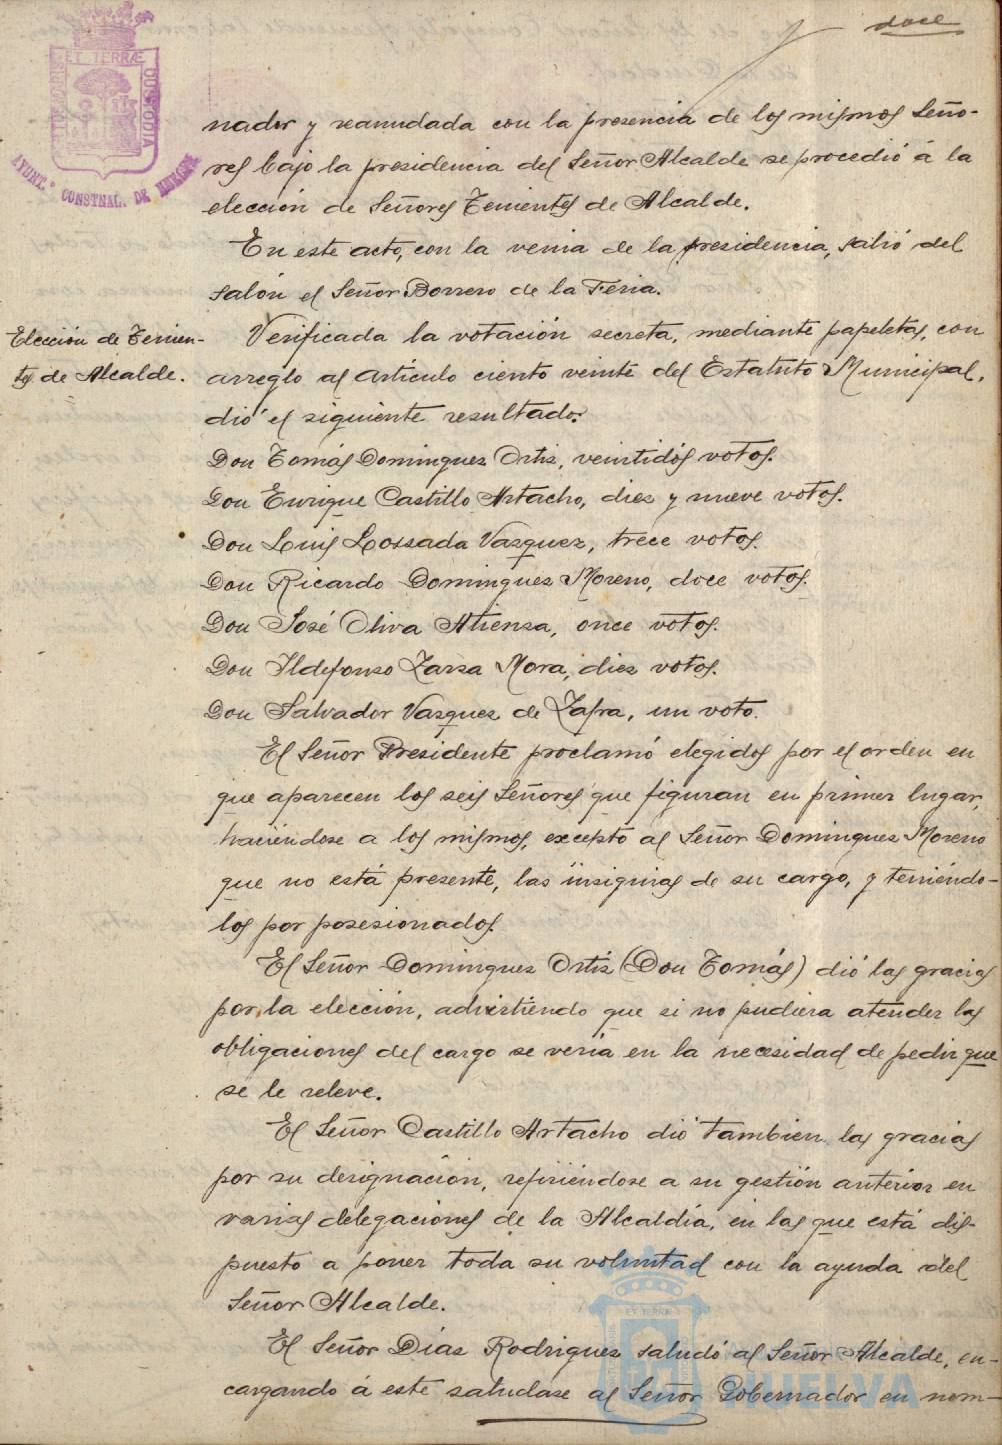 doce
PORTUS MARIS ET TERRÆ CUSTODIA
AYUNT.º CONSTNAL. DE HUELVA
nador y reanudada con la presencia de los mismos Seño-
res bajo la presidencia del Señor Alcalde se procedió á la
elección de Señores Tenientes de Alcalde.
En este acto, con la venia de la presidencia, salió del
salón el Señor Borrero de la Feria.
Elección de Tenien-
tes de Alcalde.
Verificada la votación secreta, mediante papeletas, con
arreglo al artículo ciento veinte del Estatuto Municipal,
dió el siguiente resultado:
Don Tomás Domingues Ortiz, veintidós votos.
Don Enrique Castillo Artacho, diez y nueve votos.
Don Luis Lossada Vasquez, trece votos.
Don Ricardo Domingues Moreno, doce votos.
Don José Oliva Atiensa, once votos.
Don Ildefonso Zarsa Mora, diez votos.
Don Salvador Vasques de Zafra, un voto.
El Señor Presidente proclamó elegidos por el orden en
que aparecen los seis Señores que figuran en primer lugar,
haciéndose a los mismos, excepto al Señor Domingues Moreno
que no está presente, las insignias de su cargo, y teniéndo-
los por posesionados.
El Señor Domingues Ortiz (Don Tomás) dió las gracias
por la elección, advirtiendo que si no pudiera atender las
obligaciones del cargo se vería en la necesidad de pedir que
se le releve.
El Señor Castillo Artacho dió también las gracias
por su designación, refiriéndose a su gestión anterior en
varias delegaciones de la Alcaldía, en las que está dis-
puesto a poner toda su voluntad con la ayuda del
Señor Alcalde.
El Señor Días Rodrigues saludó al Señor Alcalde, en-
cargando á este saludase al Señor Gobernador en nom-
ET TERRÆ
HUELVA